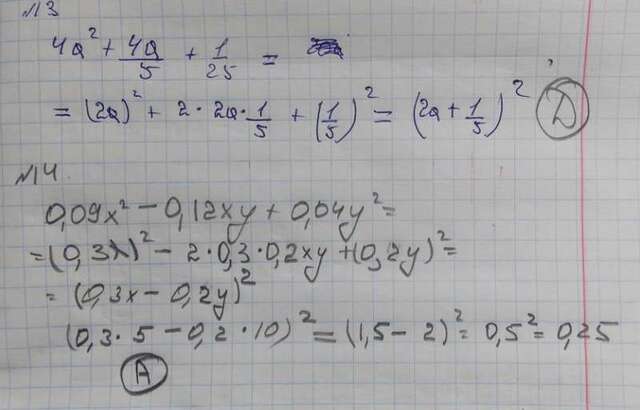 №13
4a² + 4a/5 + 1/25 =
= (2a)² + 2·2a·1/5 + (1/5)² = (2a + 1/5)² Д
№14
0,09x² - 0,12xy + 0,04y² =
= (0,3x)² - 2·0,3·0,2xy + (0,2y)² =
= (0,3x - 0,2y)²
(0,3·5 - 0,2·10)² = (1,5 - 2)² = 0,5² = 0,25
А